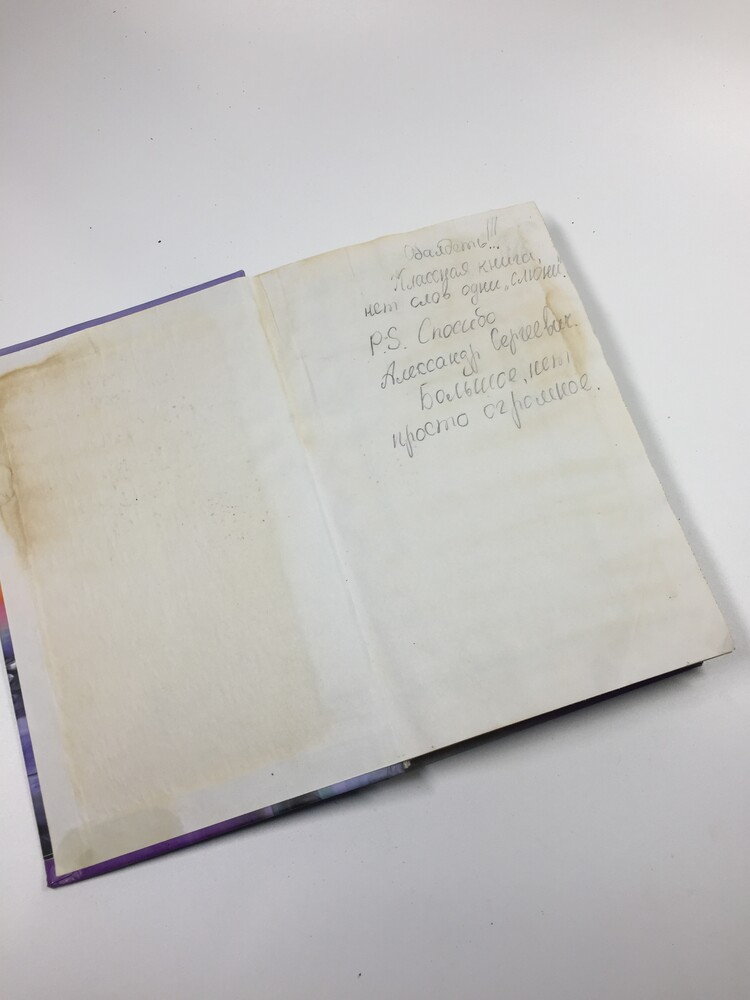 Обалдеть!!!
Классная книга,
нет слов одни „слюни".
P.S. Спосибо
Алессандр Сергеевич.
Большое, нет
просто огромное.